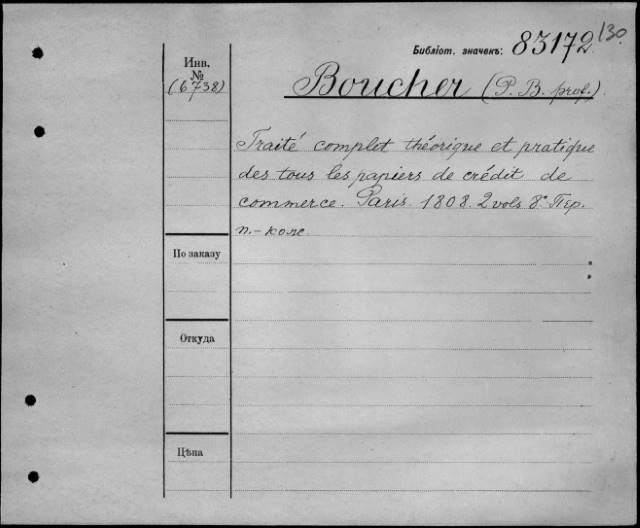 130.
Библіот. значекъ: 83172
Инв.
№
(6738)
Boucher (P. B. prof.).
Traité complet théorique et pratique
des tous les papiers de crédit de
commerce. Paris. 1808. 2 vols. 8° Пер.
п.-кож.
По заказу
Откуда
Цѣна